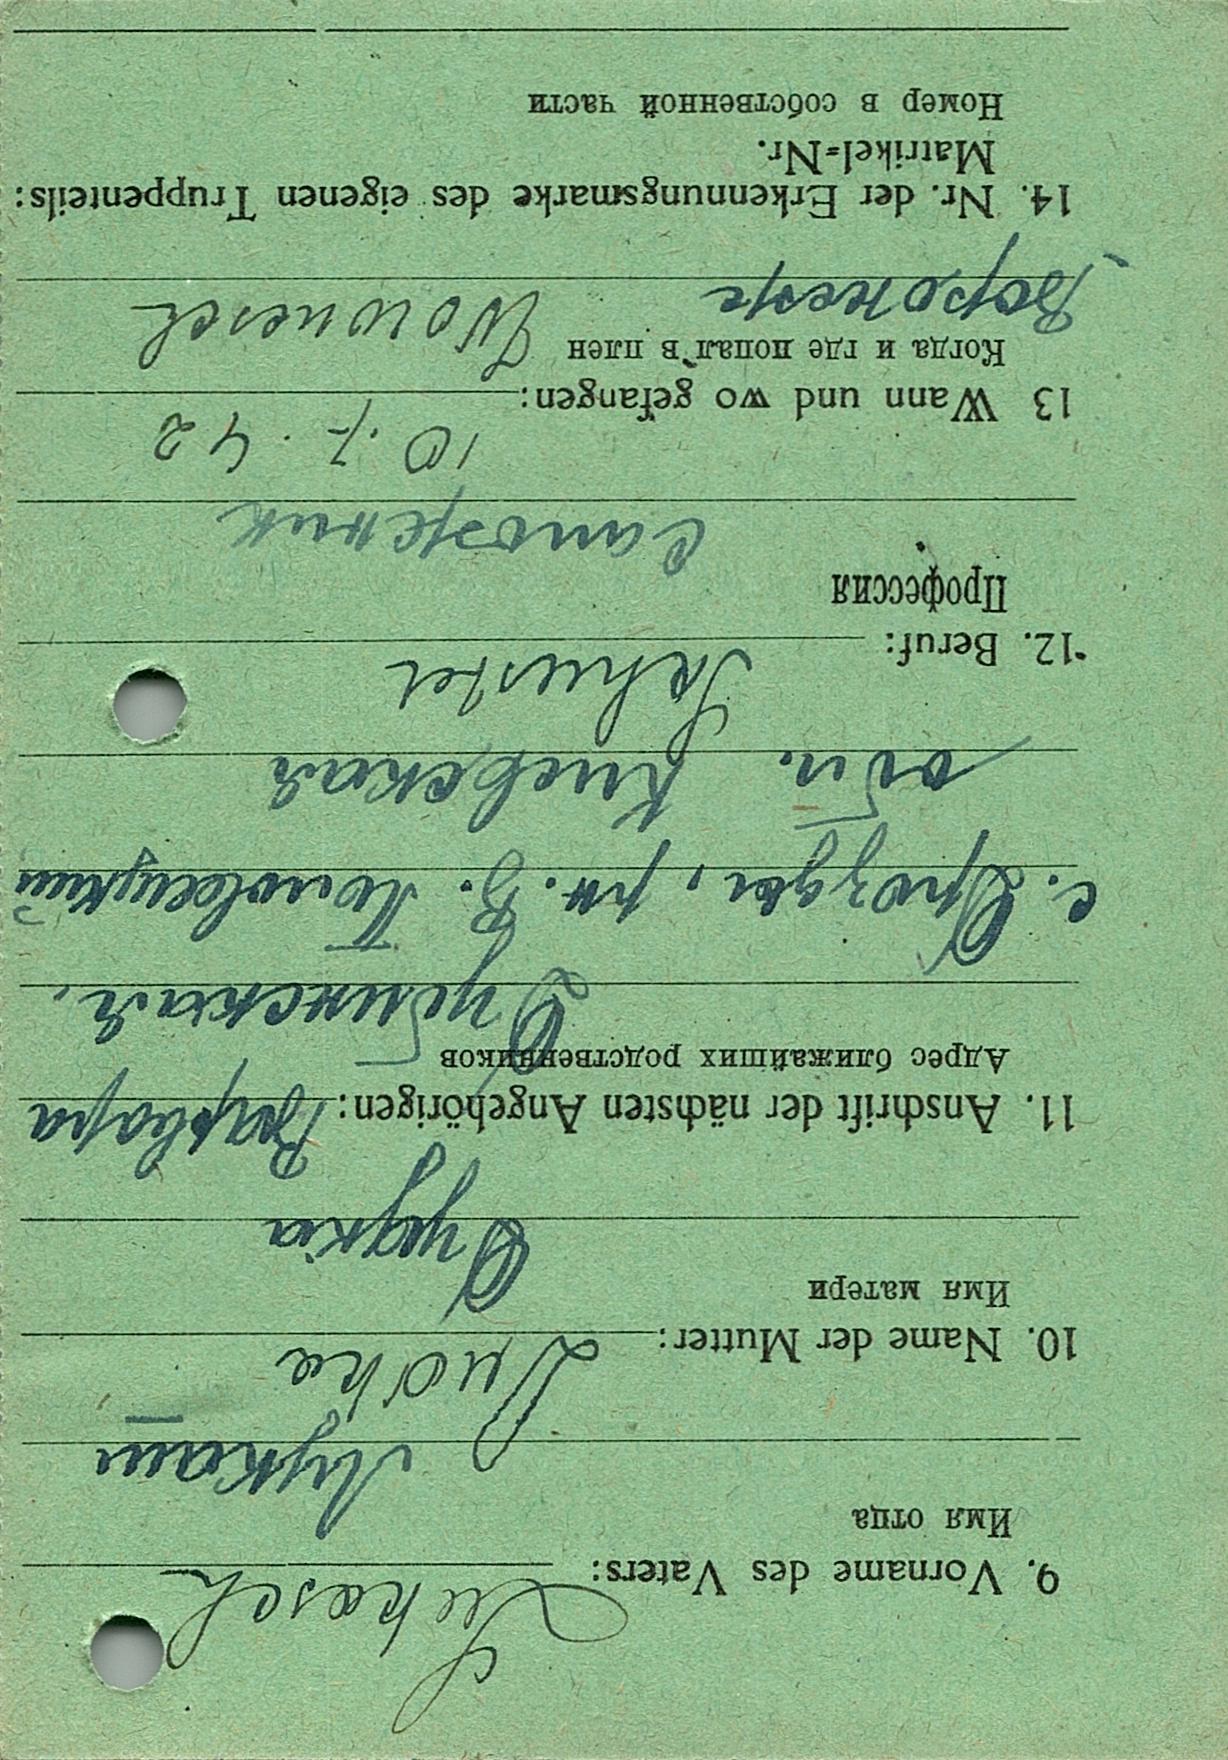 9. Vorname des Vaters: Lukasch
Имя отца
Лукаш
10. Name der Mutter: Dudka
Имя матери
Дудкіа
11. Anschrift der nächsten Angehörigen: Варвара
Адрес ближайших родственников
Дубинская.
с. Дрозды, рн. В. Половецкий
обл. Киевская
12. Beruf: Schuster
Профессия
Сапожник
10.7.42
13 Wann und wo gefangen:
Когда и где попал в плен Woronesch
Воронеж
14. Nr. der Erkennungsmarke des eigenen Truppenteils:
Matrikel=Nr.
Номер в собственной части